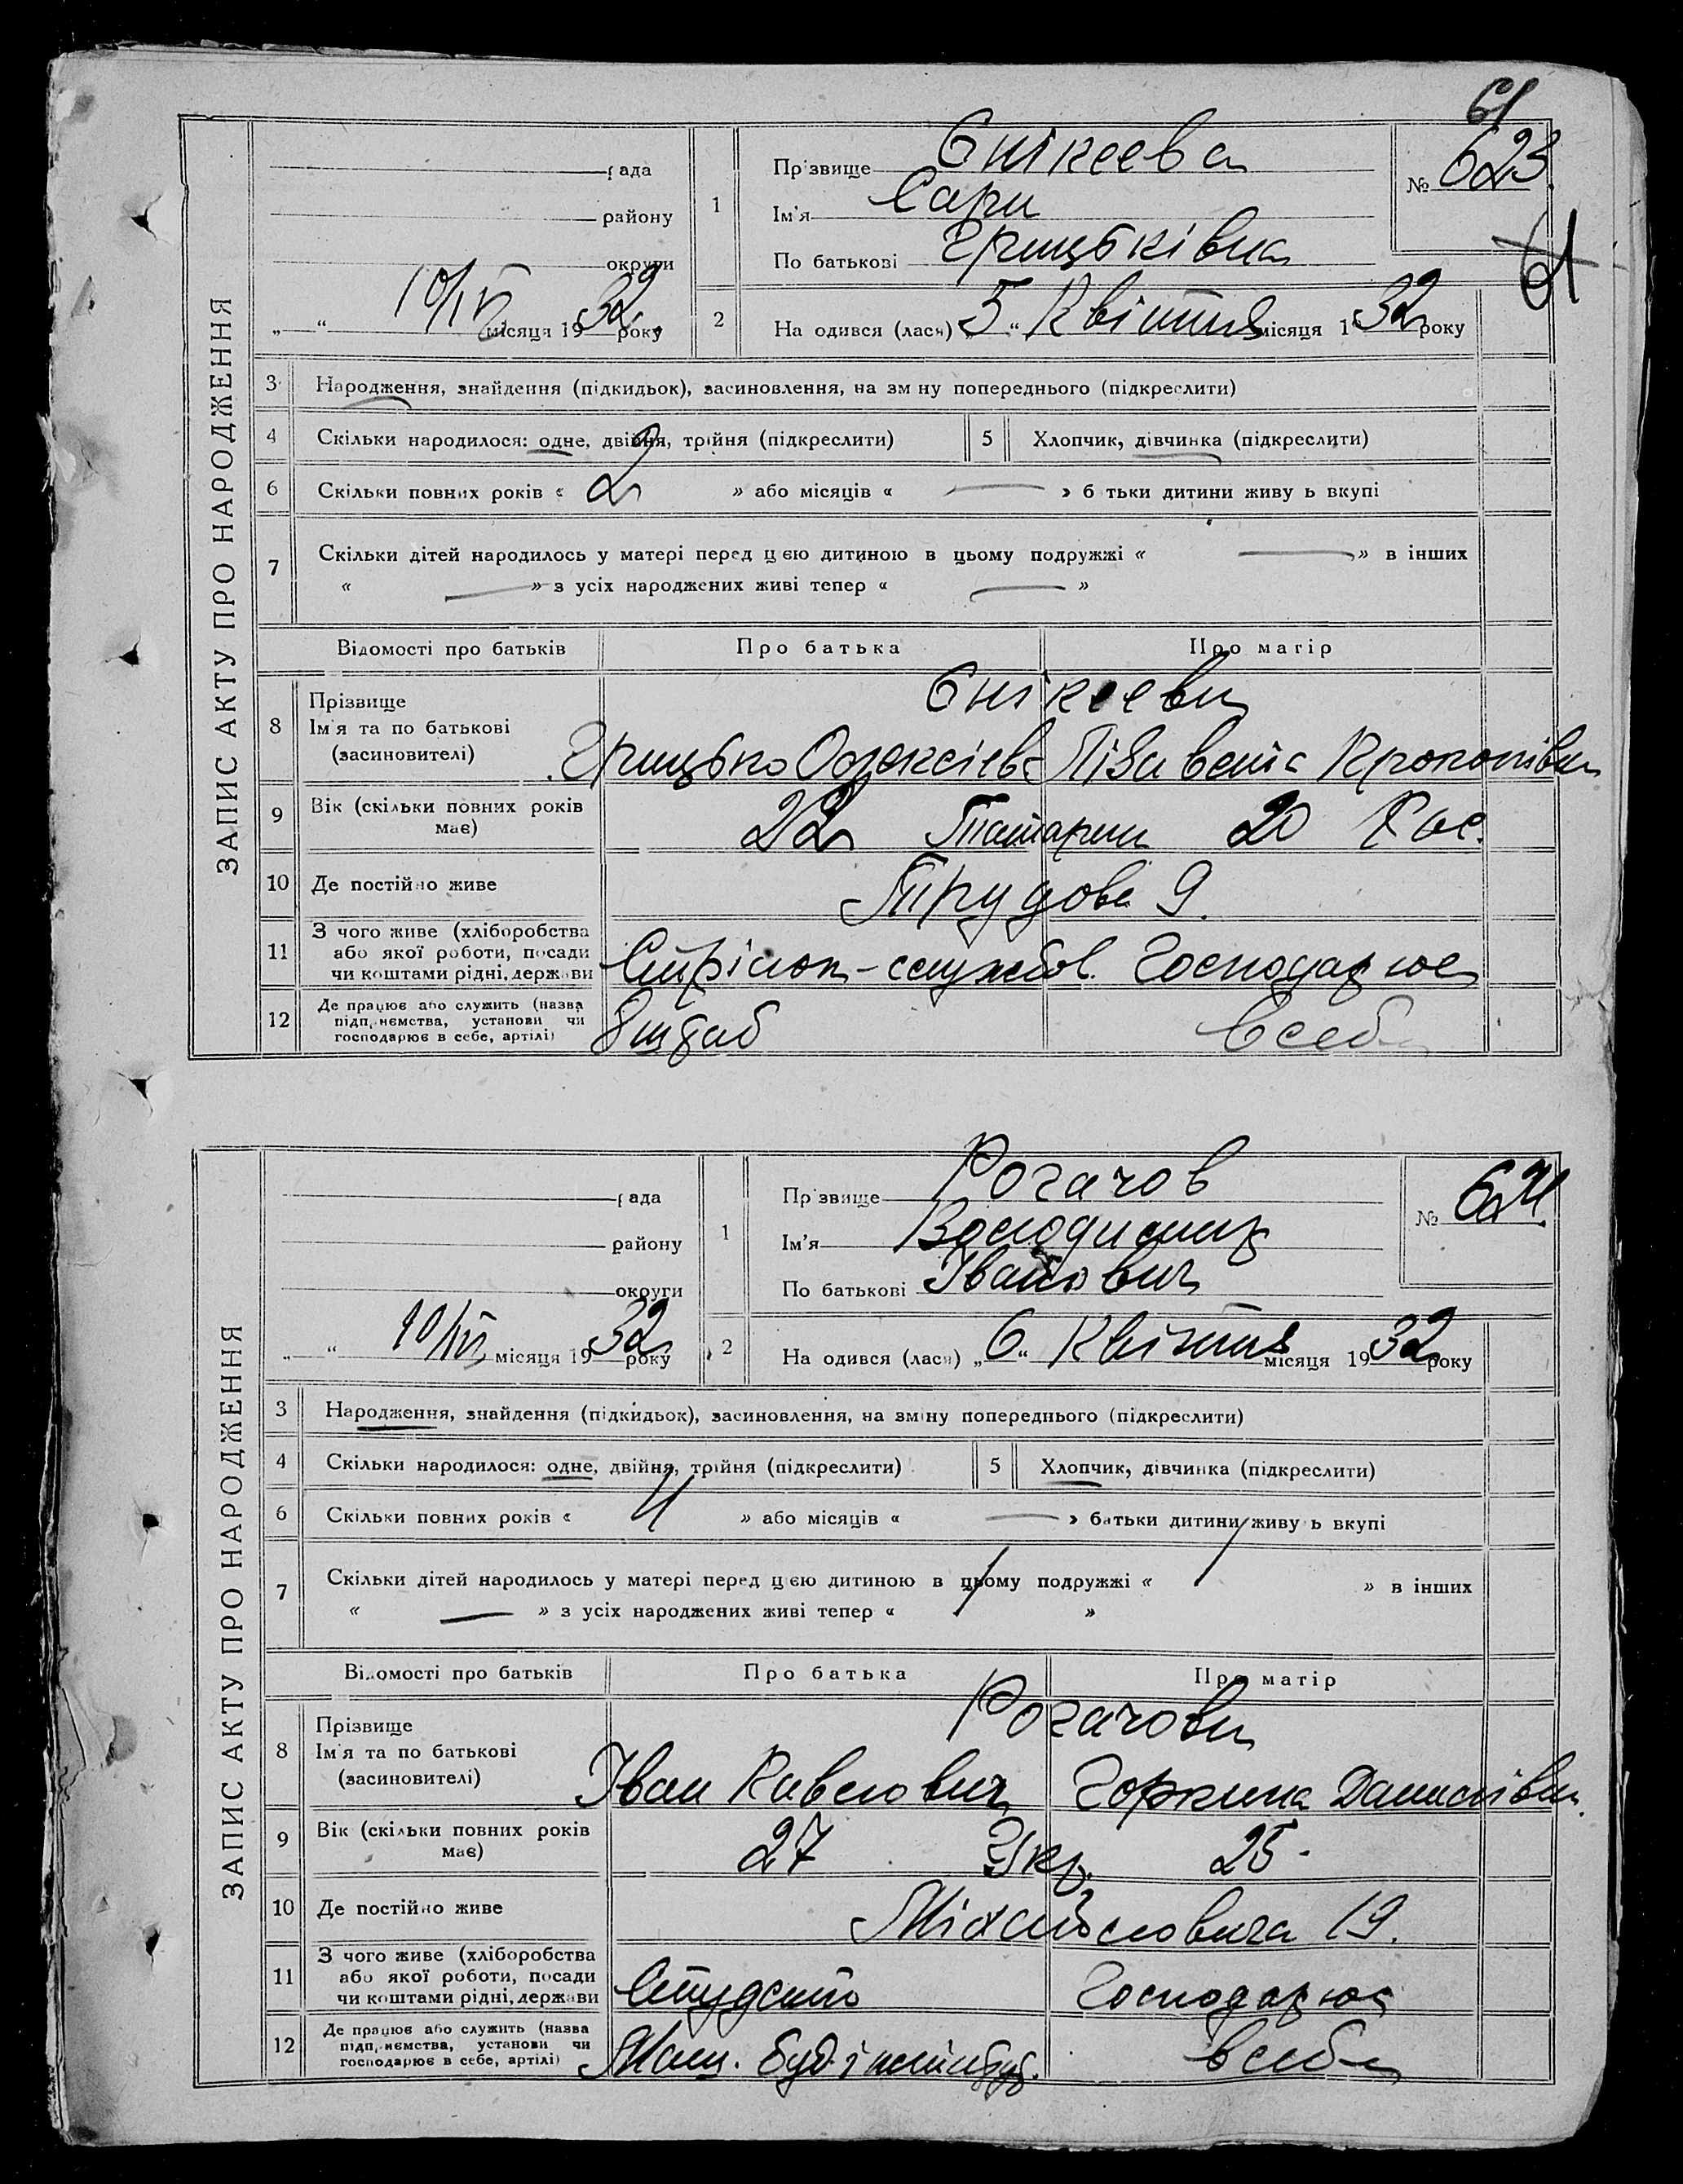 61
ЗАПИС АКТУ ПРО НАРОДЖЕННЯ
рада
району
округи
10/IV місяця 1932 року
1
Прізвище Єнікеева
Ім'я Сари
По батькові Грицьківна
№ 623
2
Народився (лася) „5“ Квітня місяця 1932 року
3 Народження, знайдення (підкидьок), засиновлення, на зміну попереднього (підкреслити)
4 Скільки народилося: одне, двійня, трійня (підкреслити)
5 Хлопчик, дівчинка (підкреслити)
6 Скільки повних років « 2 » або місяців « — » батьки дитини живуть вкупі
7 Скільки дітей народилось у матері перед цією дитиною в цьому подружжі « — » в інших
« — » з усіх народжених живі тепер « — »
Відомості про батьків Про батька Про матір
8 Прізвище
Ім'я та по батькові
(засиновителі)
Єнікееви
Грицько Лізавета Прокопівна
9 Вік (скільки повних років
має)
22 Татарин 20 Рос.
10 Де постійно живе Трудова 9.
11 З чого живе (хліборобства
або якої роботи, посади
чи коштами рідні, держави
Стрілок-службов. Господарює
12 Де працює або служить (назва
підприємства, установи чи
господарює в себе, артілі)
штаб всебе
ЗАПИС АКТУ ПРО НАРОДЖЕННЯ
рада
району
округи
10/IV місяця 1932 року
1
Прізвище Рогачов
Ім'я Володимир
По батькові Іванович
№ 624
2
Народився (лася) „6“ Квітня місяця 1932 року
3 Народження, знайдення (підкидьок), засиновлення, на зміну попереднього (підкреслити)
4 Скільки народилося: одне, двійня, трійня (підкреслити)
5 Хлопчик, дівчинка (підкреслити)
6 Скільки повних років « 4 » або місяців « — » батьки дитини живуть вкупі
7 Скільки дітей народилось у матері перед цією дитиною в цьому подружжі « 1 » в інших
« — » з усіх народжених живі тепер « 1 »
Відомості про батьків Про батька Про матір
8 Прізвище
Ім'я та по батькові
(засиновителі)
Рогачови
Іван Павлович Горпина Данилівна
9 Вік (скільки повних років
має)
27 Укр. 25
10 Де постійно живе Міхайловича 19.
11 З чого живе (хліборобства
або якої роботи, посади
чи коштами рідні, держави
Студент Господарює
12 Де працює або служить (назва
підприємства, установи чи
господарює в себе, артілі)
Маш. буд. інститут. всебе